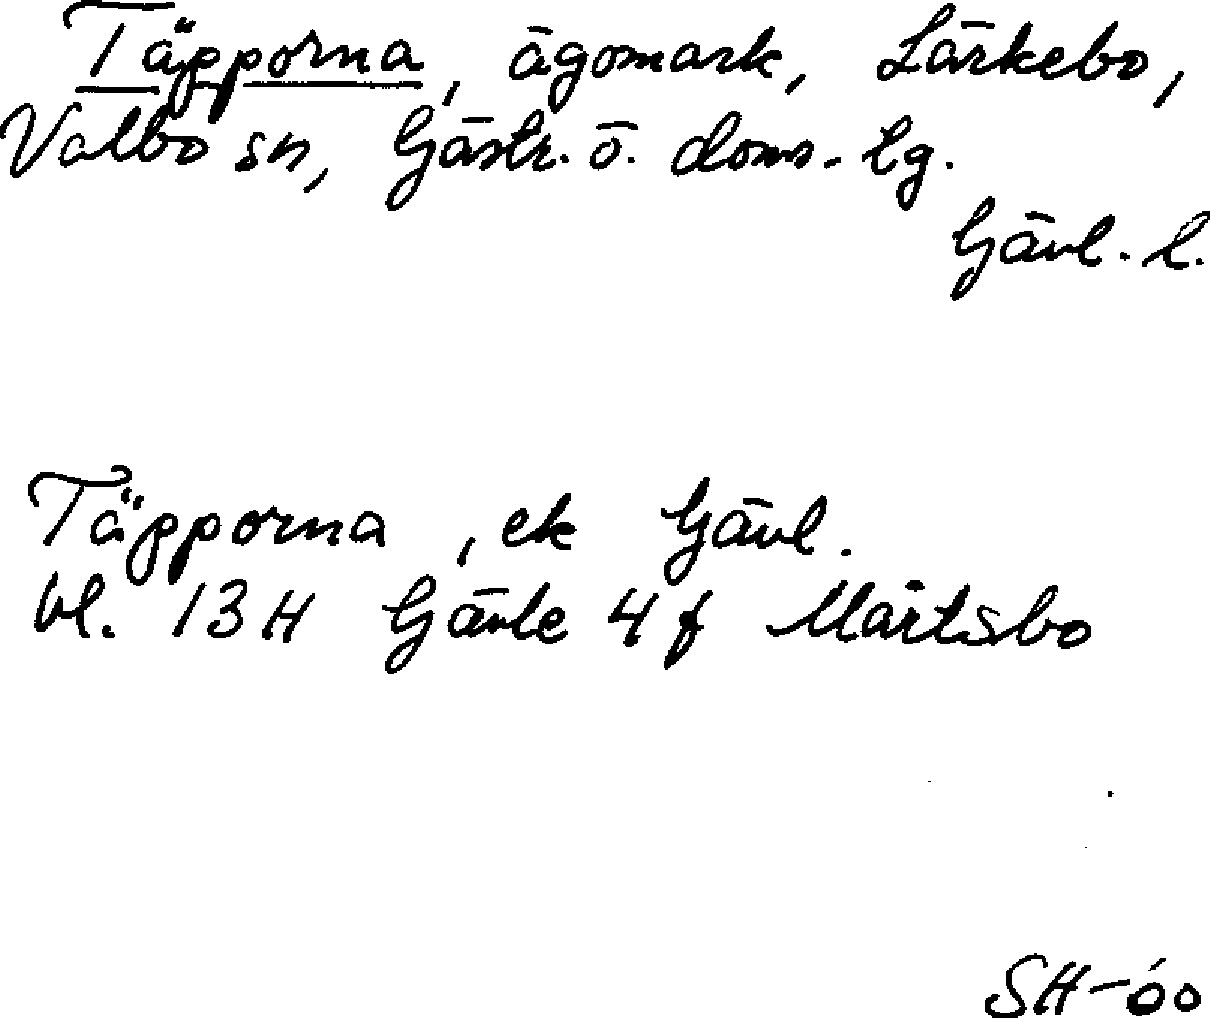 Täpporna, ägomark, Lärkebo,
Valbo sn, Gästr. ö. doms. lg.
Gävl. l.
Täpporna, ek Gävl.
bl. 13H Gävle 4f Mårtsbo
SH-60